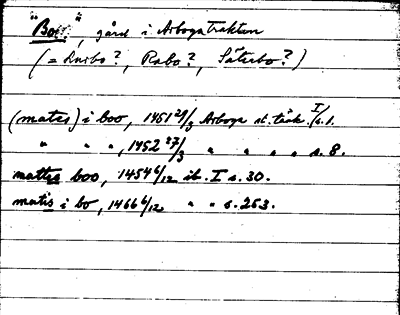 "Bo", gård i Arbogatrakten
(= Lurbo?, Rabo?, Säterbo?)
(mates) i boo, 1451 29/3 Arboga st. tänk. I/s.1.
" " ", 1452 27/3 " " " " s. 8.
mattis boo, 1454 6/12 ib. I s. 30.
matis i bo, 1466 6/12 " " s. 263.